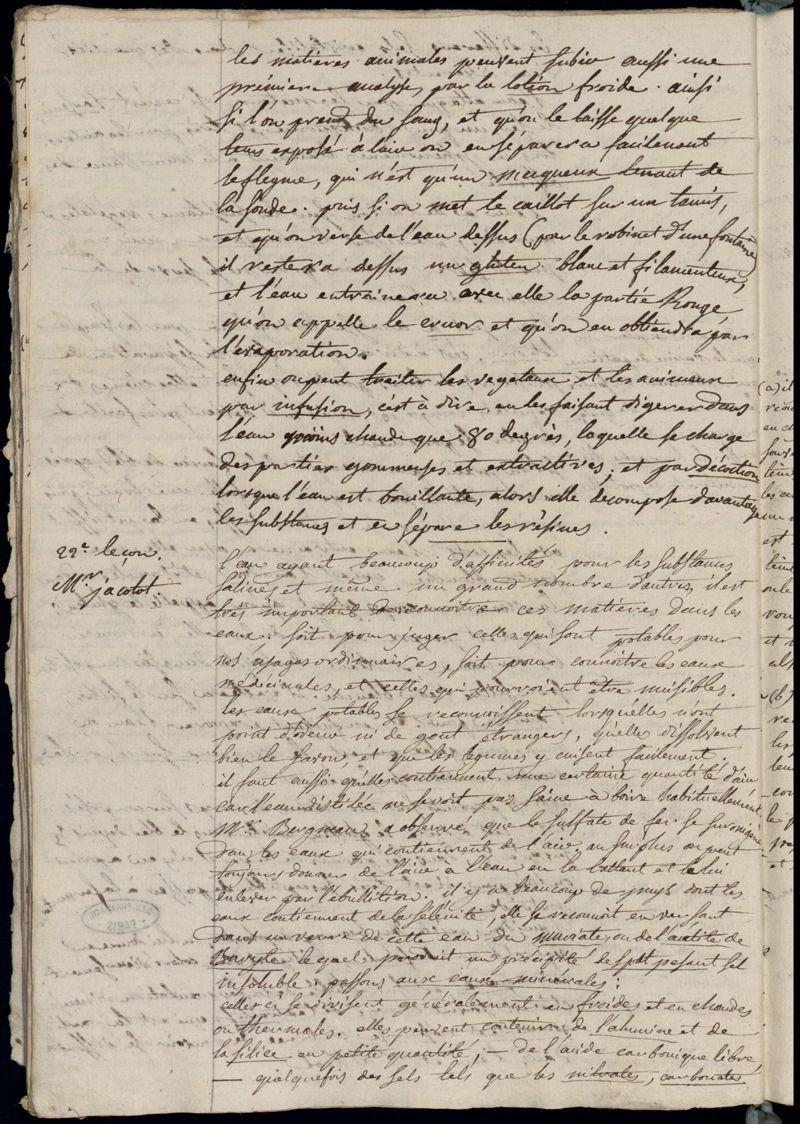 les matieres animales peuvent subir aussi une
prémiere analyse par la lotion froide. ainsi
si l'on prend du sang, et qu'on le laisse quelque
tems exposé à l'air on en séparera facilement
le flegme, qui n'est qu'un muqueux tenant de
la soude. puis si on met le caillot sur un tamis,
et qu'on verse de l'eau dessus (par le robinet d'une fontaine)
il restera dessus un gluten blanc et filamenteux,
et l'eau entrainera avec elle la partie Rouge
qu'on appelle le cruor et qu'on en obtiendra par
l'évaporation.
enfin on peut traiter les vegetaux et les animaux
par infusion, c'est à dire en les faisant digerer dans
l'eau moins chaude que 80 degrès, laquelle se charge
des parties gommeuses et extractives; et par décoction
lorsque l'eau est bouillante, alors elle décompose davantage
les substances et en sépare les résines.
22e leçon.
Mr jacotot.
l'eau ayant beaucoup d'affinités pour les substances
salines et même un grand nombre d'autres, il est
trés important de reconnoitre ces matiéres dans les
eaux; soit pour juger celles qui sont potables pour
nos usages ordinnaires, soit pour connoitre les eaux
médicinales, et celles qui pourroient être nuisibles.
les eaux potables se reconnoissent lorsqu'elles n'ont
point d'odeur ni de gout etrangers, qu'elle dissolvent
bien le savon, et que les legumes y cuisent facilement;
il faut aussi qu'elles contiennent une certaine quantité d'air
car l'eau distilée ne seroit pas saine à boire habituellement.
Mr Bergman a observé que le sulfate de fer se suroxigene
dans les eaux qui contiennent de l'air, au surplus on peut
toujours donner de l'air a l'eau en la battant et le lui
enlever par l'ébullition. il y a beaucoup de pays dont les
eaux contiennent de la sélénite, elle se reconnoit en versant
dans un verre de cette eau du muriate, ou de l'acétite de
Baryte lequel produit un précipité de spath pesant sel
insoluble. passons aux eaux minérales:
celles ci se divisent généralement en froides et en chaudes
ou thermales. elles peuvent contenir de l'alumine et de
la silice en petite quantité; — de l'acide carbonique libre,
— quelquefois des sels tels que les nitrates, carbonates